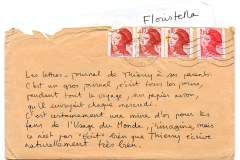 Floristella
Les lettres-journal de Thierry à ses parents.
C'est un gros journal, écrit tous les jours,
pendant tout le voyage, sur papier avion,
qu'il envoyait chaque mercredi.
C'est certainement une mine d'or pour les
fans de l'Usage du Monde, j'imagine, mais
ce n'est pas "écrit" bien que Thierry écrive
naturellement très bien.